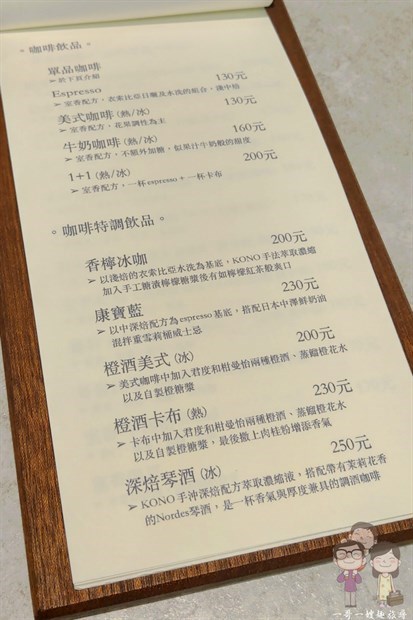 。咖啡飲品。
單品咖啡
➢ 於下頁介紹
Espresso 130元
➢ 室香配方，衣索比亞日曬及水洗的組合，淺中焙
美式咖啡(熱/冰) 130元
➢ 室香配方，花果調性為主
牛奶咖啡(熱/冰) 160元
➢ 室香配方，不額外加糖，似果汁牛奶般的甜度
1+1(熱/冰) 200元
➢ 室香配方，一杯espresso + 一杯卡布
。咖啡特調飲品。
香檸冰咖 200元
➢ 以淺焙的衣索比亞水洗為基底，KONO手法萃取濃縮
加入手工糖漬檸檬糖漿後有如檸檬紅茶般爽口
康寶藍 230元
➢ 以中深焙配方為espresso基底，搭配日本中澤鮮奶油
混拌重雪莉桶威士忌
橙酒美式(冰) 200元
➢ 美式咖啡中加入君度和柑曼怡兩種橙酒、蒸餾橙花水
以及自製橙糖漿
橙酒卡布(熱) 230元
➢ 卡布中加入君度和柑曼怡兩種橙酒、蒸餾橙花水
以及自製橙糖漿，最後撒上肉桂粉增添香氣
深焙琴酒(冰) 250元
➢ KONO手沖深焙配方萃取濃縮液，搭配帶有茉莉花香
的Nordes琴酒，是一杯香氣與厚度兼具的調酒咖啡